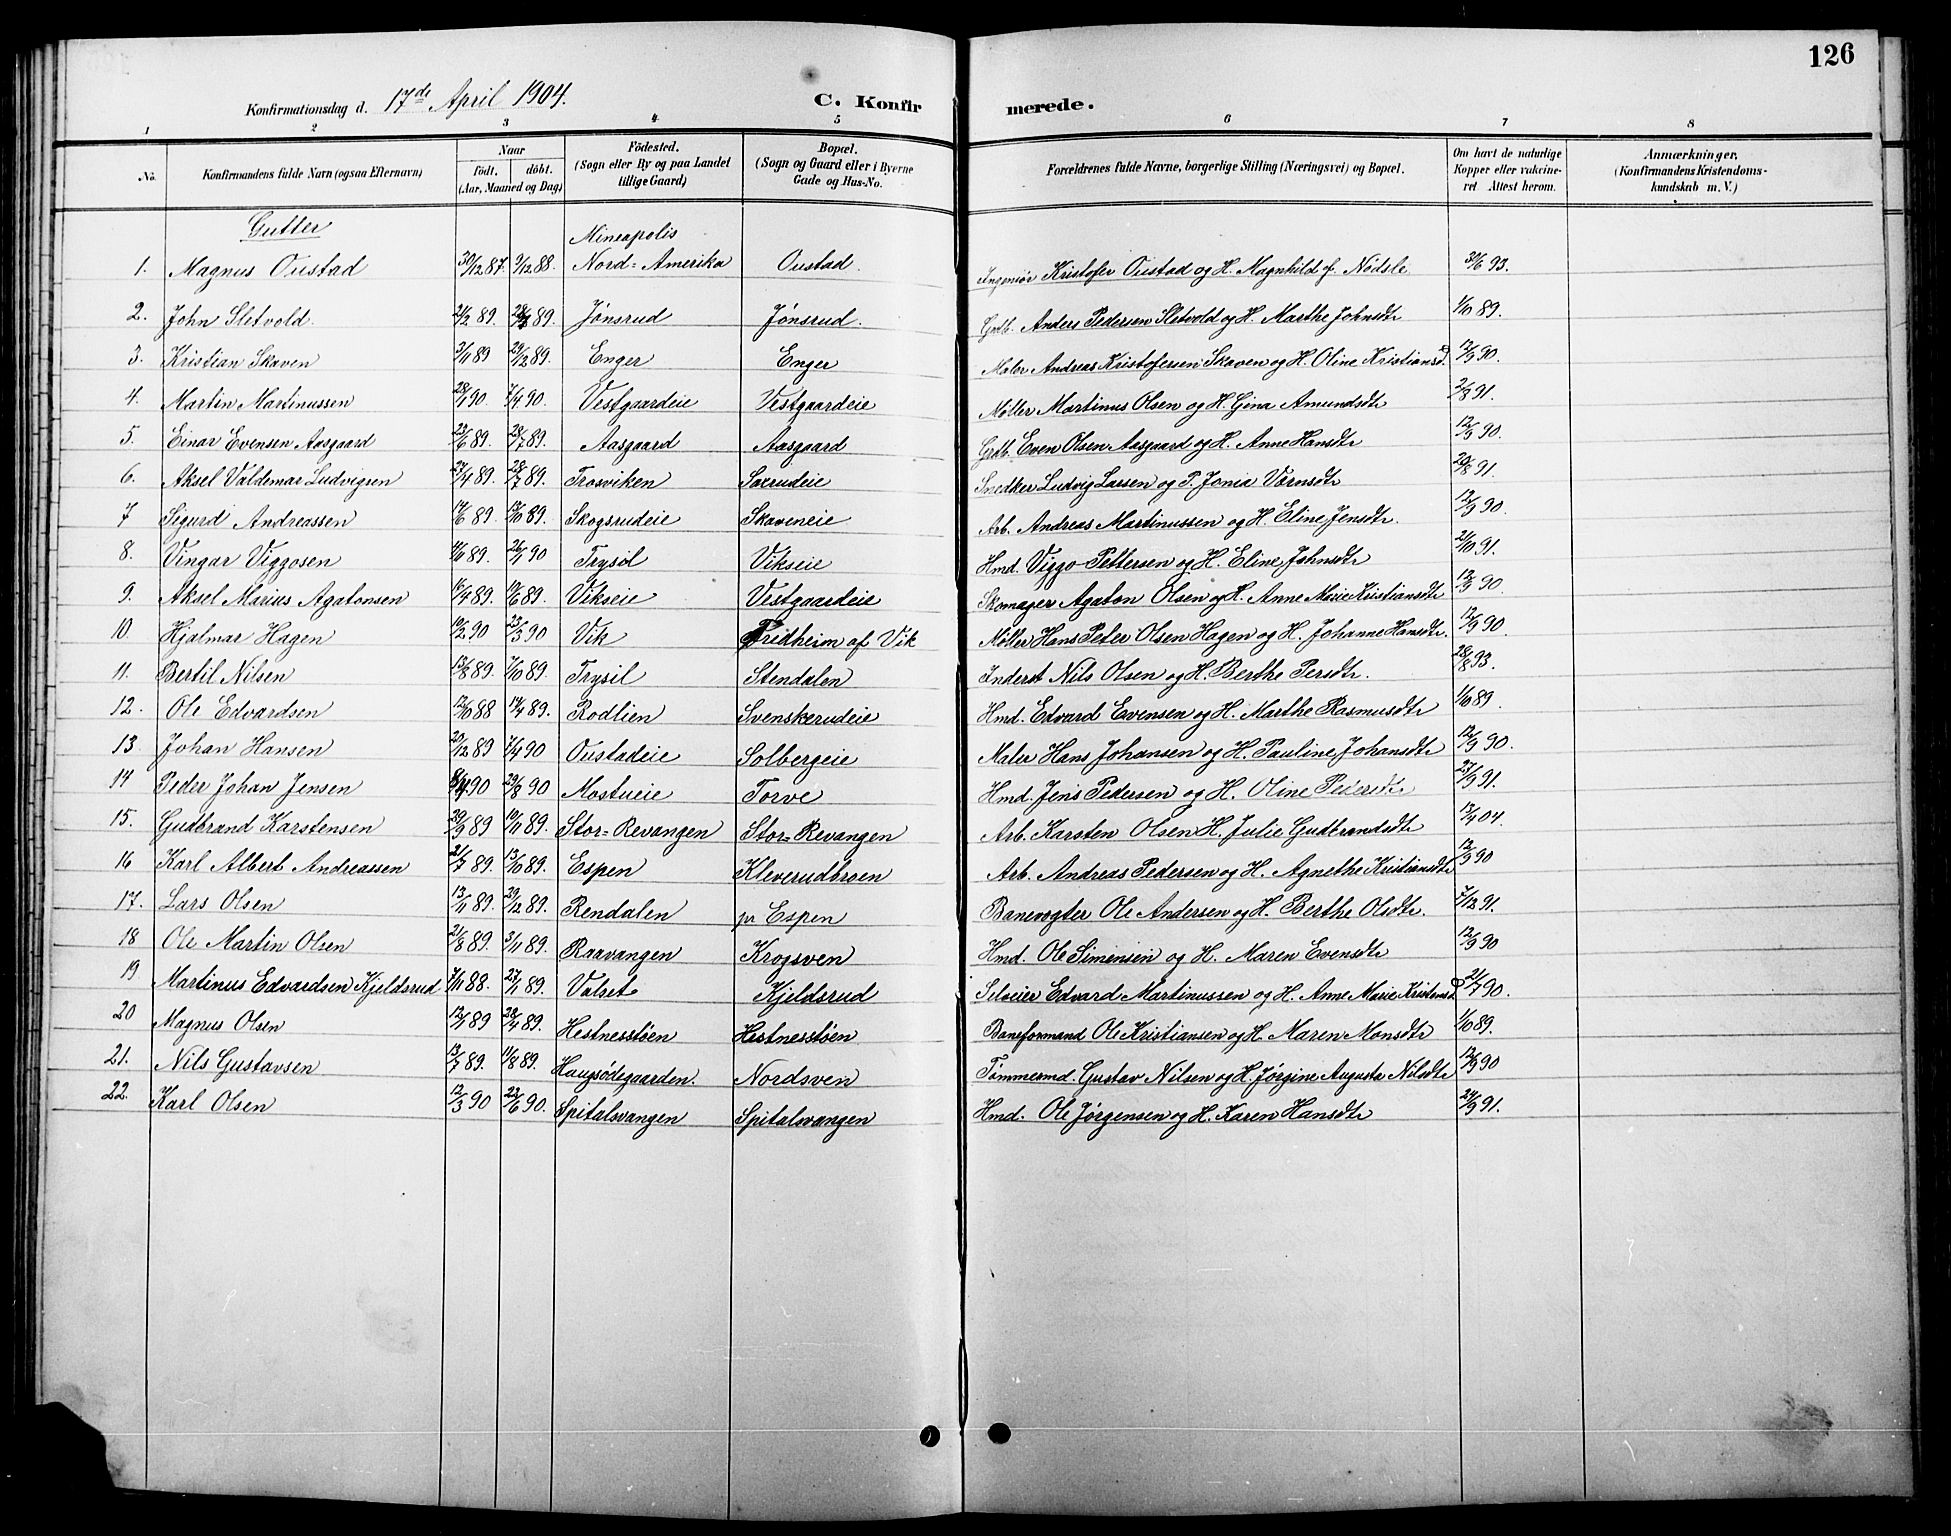 126
Konfirmationsdag d. 17de April 1904. C. Konfirmerede.
1 2 3 4 5 6 7 8
No. Konfirmandens fulde Navn (ogsaa Efternavn) Naar født. døbt. (Aar, Maaned og Dag) Fødested. (Sogn eller By og paa Landet tillige Gaard) Bopæl. (Sogn og Gaard eller i Byerne Gade og Hus-No. Forældrenes fulde Navne, borgerlige Stilling (Næringsvei) og Bopæl. Om havt de naturlige Kopper eller vakcineret. Attest herom. Anmærkninger. (Konfirmandens Kristendomskundskab m. V.)
Gutter
Mineapolis
1. Magnus Oustad 30/12 87. 9/12 88. Nord-Amerika Oustad. Ingeniør Kristofer Oustad og H. Magnhild f. Nødsle 30/6 93.
2. John Sletvold. 21/2 89. 89. Jønsrud Jønsrud. Grdb. Anders Pedersen Sletvold og H. Marthe Johnsdtr 1/10 89.
3. Kristian Skaven 3/11 89 29/12 89. Enger Enger Maler Andreas Kristofersen Skaven og H. Oline Kristiansd. 12/9 90.
4. Martin Martinussen 28/1 90. 7/4 90. Vestgaardeie Vestgaardeie Møller Martinus Olsen og H. Gina Amundsdtr 2/8 91.
5. Einar Evensen Aasgaard 23/6 89. 28/7 89. Aasgaard Aasgaard Grdb. Even Olsen Aasgaard og H. Anne Hansdtr 12/9 90.
6. Aksel Valdemar Ludvigsen 27/4 89. 28/7 89. Trosviken Saxrudeie Snedker Ludvig Larsen og P. Jonia Værnsdtr 29/8 91.
7 Sigurd Andreassen 17/6 89. 13/10 89. Skogsrudeie Skaveneie Arb. Andreas Martinussen og H. Eline Jensdtr. 12/9 90.
8. Vingar Viggosen 89. 26/1 90 Trysil Vikseie Hmd. Viggo Pettersen og H. Eline Johnsdtr 21/10 91.
9. Aksel Marius Agatonsen 16/4 89. 10/6 89. Vikseie Vestgaardeie Skomager Agaton Olsen og H. Anne Marie Kristiansdtr 12/9 90.
10. Hjalmar Hagen 10/2 90 23/3 90 Vik Fridheim af Vik Møller Hans Peter Olsen Hagen og H. Johanne Hansdtr. 12/9 90.
11. Bertil Nilsen 13/8 89. 7/10 89. Trysil Stendalen Inderst Nils Olsen og H. Berthe Persdtr. 28/8 93.
12. Ole Edvardsen 12/10 88 14/4 89. Rodlien Svenskerudeie Hmd. Edvard Evensen og H. Marthe Rasmusdtr 1/10 89.
13. Johan Hansen 20/12 89 7/4 90 Oustadeie Solbergeie Maler Hans Johansen og H. Pauline Johansdtr 12/9 90.
14 Peder Johan Jensen 90 29/8 90 Mostueie Torve Hmd. Jens Pedersen og H. Oline Pedersdtr 27/9 91.
15. Gudbrand Karstensen 20/9 89 10/11 89. Stor-Revangen Stor-Revangen Arb. Karsten Olsen H. Julie Gudbrandsdtr 13/4 04.
16 Karl Albert Andreassen 21/7 89. 13/10 89. Espen Kleverudbroen Arb. Andreas Pedersen og H. Agnethe Kristiansdtr 12/9 90
17. Lars Olsen 13/11 89. 29/12 89. Rendalen pr Espen Banevogter Ole Andersen og H. Berthe Olsdtr. 7/12 91.
18 Ole Martin Olsen 21/8 89. 3/11 89. Raavangen Krogsven Hmd. Ole Simensen og H. Maren Evensdtr 12/9 90
19 Martinus Edvardsen Kjeldsrud 7/11 88. 27/1 89. Valset Kjeldsrud Selveier Edvard Martinussen og H. Anne Marie Kristensd. 21/7 90.
20 Magnus Olsen 12/1 89 28/4 89. Hestnesstøen Hestnesstøen Baneformand Ole Kristiansen og H. Maren Monsdtr 1/10 89.
21. Nils Gustavsen 13/7 89. 11/8 89. Haugsødegaarden. Nordsven Tømmermd. Gustav Nilsen og H. Jørgine Augusta Nilsdtr 12/9 90
22. Karl Olsen 12/3 90 22/6 90. Spitalsvangen Spitalsvangen Hmd. Ole Jørgensen og H. Karen Hansdtr 24/9 91.